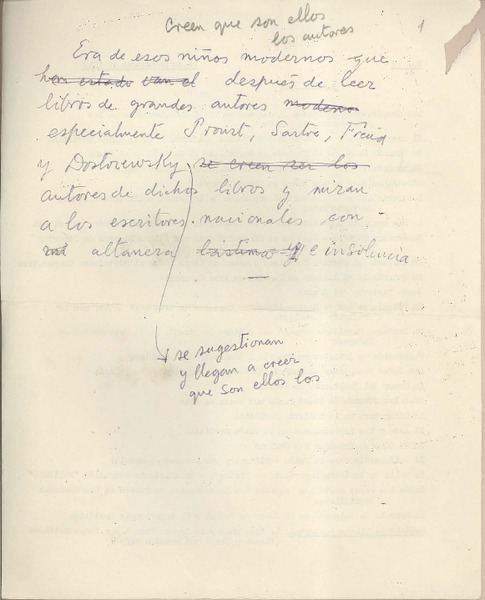 creen que son ellos
los autores
1
Era de esos niños modernos que
han estado van el después de leer
libros de grandes autores moderno
especialmente Proust, Sartre, Freud
y Dostoiewsky se creen ser los
autores de dichos libros y miran
a los escritores nacionales con
altanera lástima y e insolencia
se sugestionan
y llegan a creer
que son ellos los